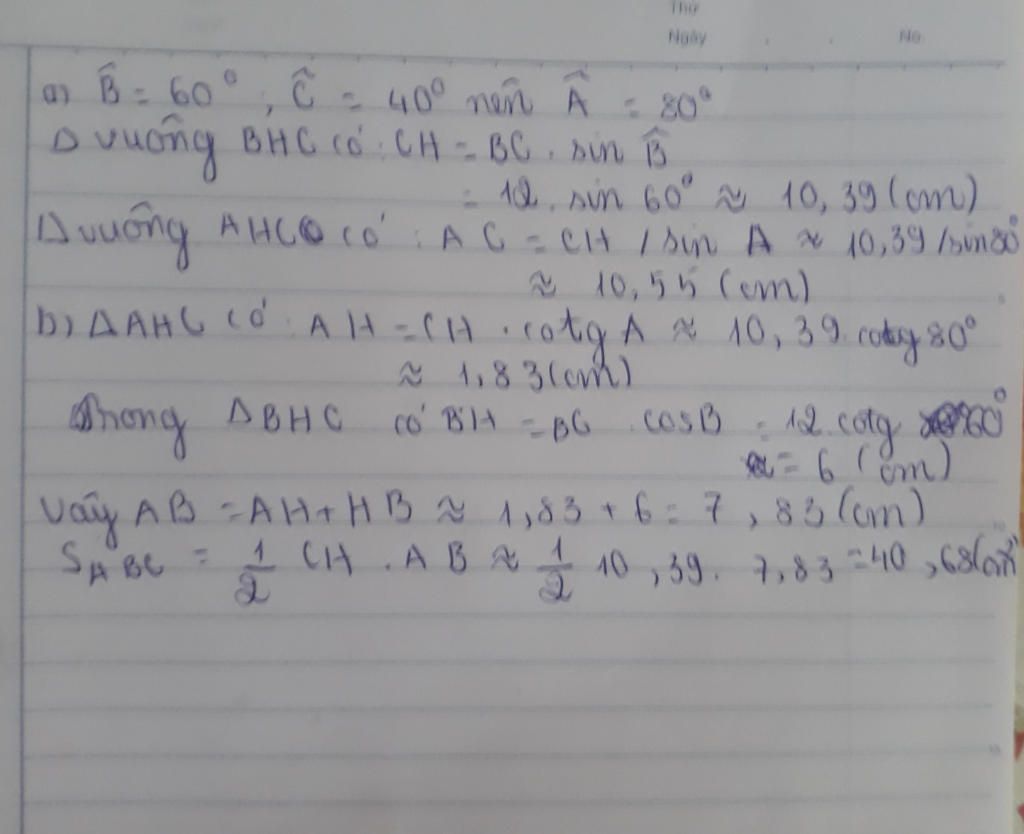 Thứ
Ngày . . No
a) B̂ = 60°, Ĉ = 40° nên Â = 80°
Δ vuông BHC có: CH = BC . sin B̂
= 12. sin 60° ≈ 10,39 (cm)
Δ vuông AHC có: AC = CH / sin A ≈ 10,39 / sin 80°
≈ 10,55 (cm)
b) ΔAHC có: AH = CH . cotg A ≈ 10,39. cotg 80°
≈ 1,83 (cm)
Trong ΔBHC có BH = BC . cosB = 12. cotg 60°
= 6 (cm)
Vậy AB = AH + HB ≈ 1,83 + 6 = 7,83 (cm)
S_ABC = 1/2 CH . AB ≈ 1/2 10,39. 7,83 = 40,68 (cm²